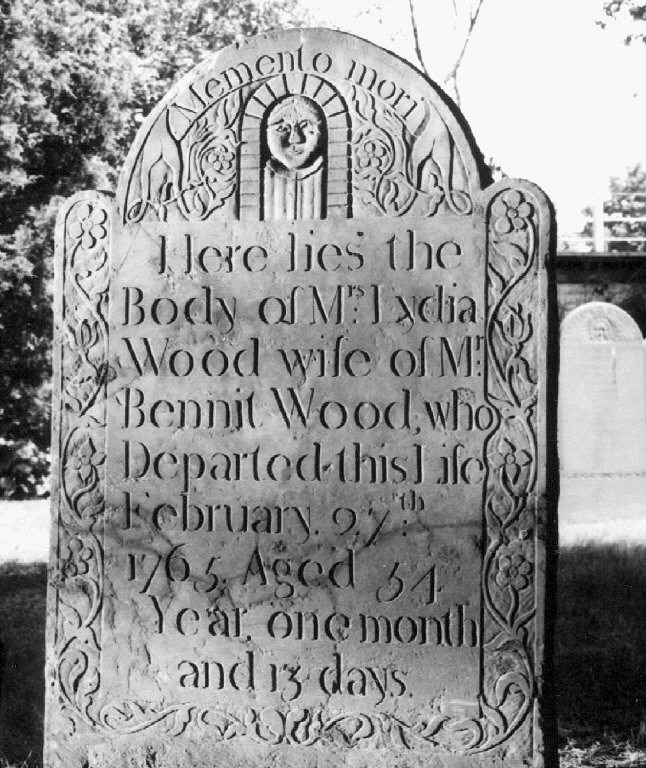 Memento mori
Here lies the
Body of Mrs. Lydia
Wood wife of Mr.
Bennit Wood, who
Departed this Life
February 27th
1765. Aged 54
Year, one month
and 13 days.